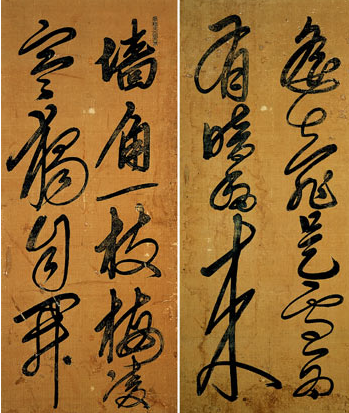 墻角一枝梅凌
寒獨自開
遙知不是雪為
有暗香來